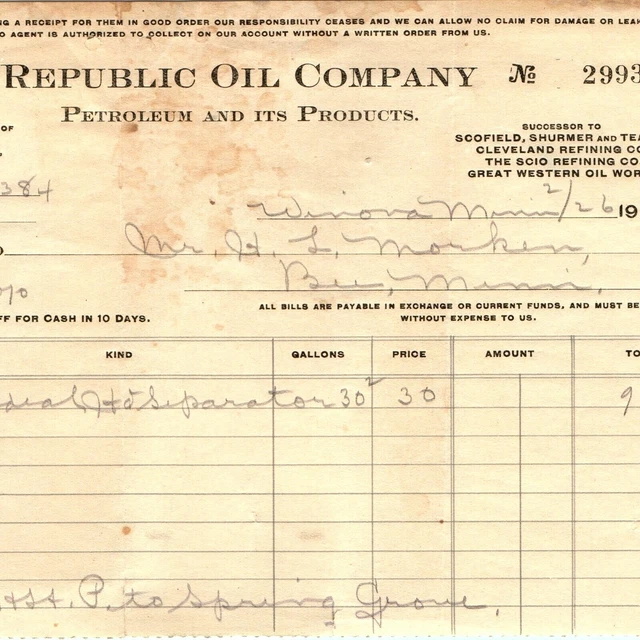 NG A RECEIPT FOR THEM IN GOOD ORDER OUR RESPONSIBILITY CEASES AND WE CAN ALLOW NO CLAIM FOR DAMAGE OR LEA
O AGENT IS AUTHORIZED TO COLLECT ON OUR ACCOUNT WITHOUT A WRITTEN ORDER FROM US.
REPUBLIC OIL COMPANY No 2993
PETROLEUM AND ITS PRODUCTS.
OF
SUCCESSOR TO
SCOFIELD, SHURMER AND TEA
CLEVELAND REFINING CO
THE SCIO REFINING CO
GREAT WESTERN OIL WOR
384
Winona Minn 2/26 19
Mr. H. L. Morken,
Bee, Minn.
ALL BILLS ARE PAYABLE IN EXCHANGE OR CURRENT FUNDS, AND MUST BE
WITHOUT EXPENSE TO US.
FF FOR CASH IN 10 DAYS.
KIND GALLONS PRICE AMOUNT TO
deal Hd Separator 30² 30 9
P. to Spring Grove.